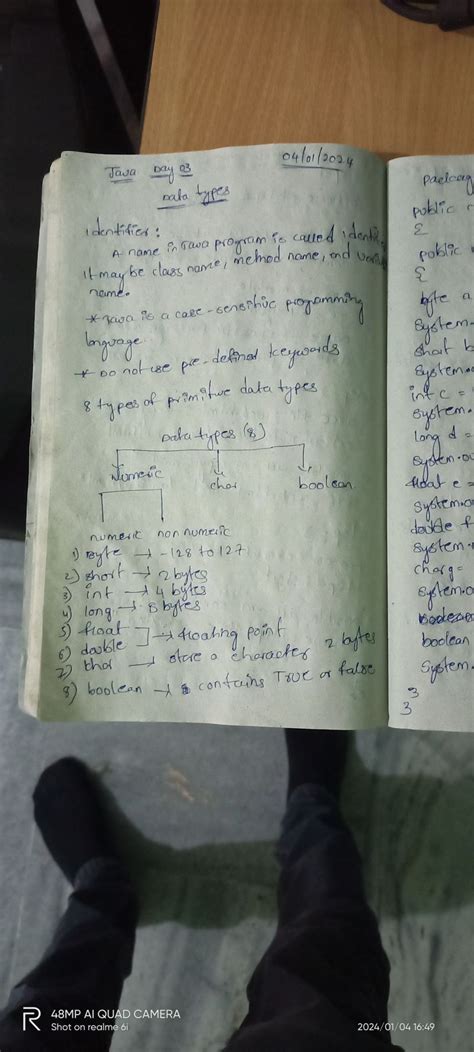 Java Day 03
04/01/2024
Data types
Identifier:
A name in Java program is called
It may be class name, method name, and
name.
* Java is a case-sensitive programming
language.
* Do not use pre-defined keywords
8 types of primitive data types
Data types (8)
Numeric char boolean
numeric non numeric
1) Byte → -128 to 127
2) short → 2 bytes
3) int → 4 bytes
4) long → 8 bytes
5) float
6) double → floating point
7) char → store a character 2 bytes
8) boolean → contains True or false
public
{
public
{
byte a
System.
short b
System.
int c =
System.
long d =
System.ou
float e =
System.o
double f
System.
char g =
System.o
boolean
System.
}
}
48MP AI QUAD CAMERA
Shot on realme 6i
2024/01/04 16:49